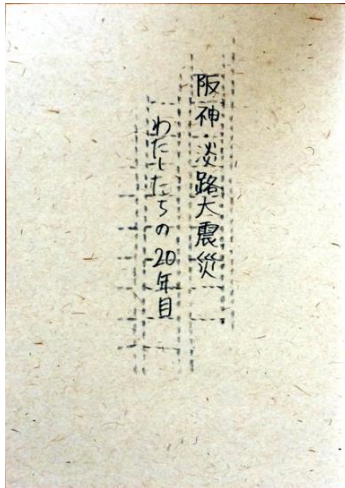 阪神・淡路大震災
わたしたちの20年目